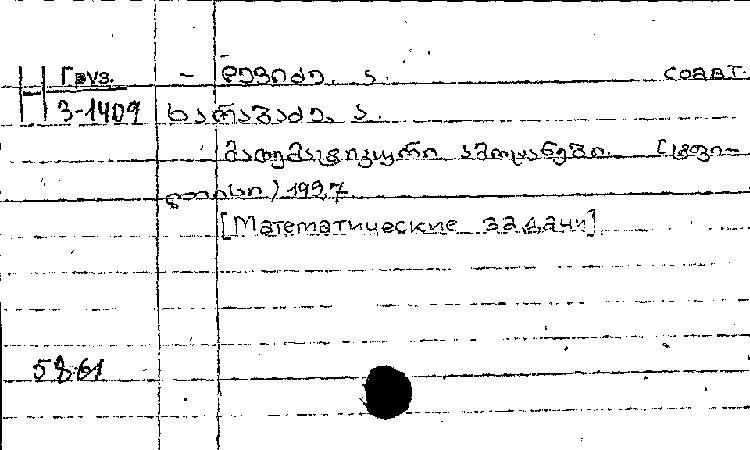 Н Груз. – ა. соавт.
3-1409 ხარაბაძე, ა.
მათემატიკური ამოცანები. (ტფი-
ლისი) 1937
[Математические задачи]
5861